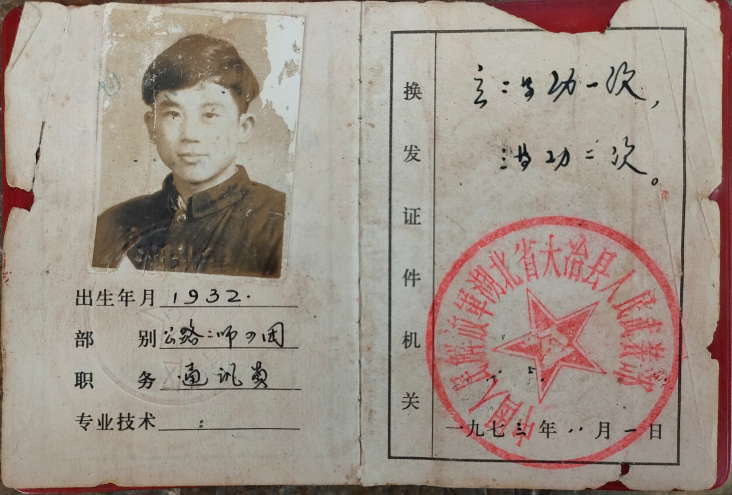 出生年月 1932.
部别 公路二师四团
职务 通讯员
专业技术
换发证件机关
立二等功一次，
三等功二次。
中国人民解放军湖北省大冶县人民武装部
一九七三年八月一日